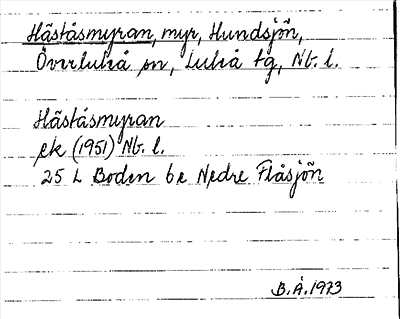 Häståsmyran, myr, Hundsjön,
Överluleå sn, Luleå tg, Nb. l.
Häståsmyran
ek (1951) Nb. l.
25 L Boden 6e Nedre Flåsjön
B.Å.1973